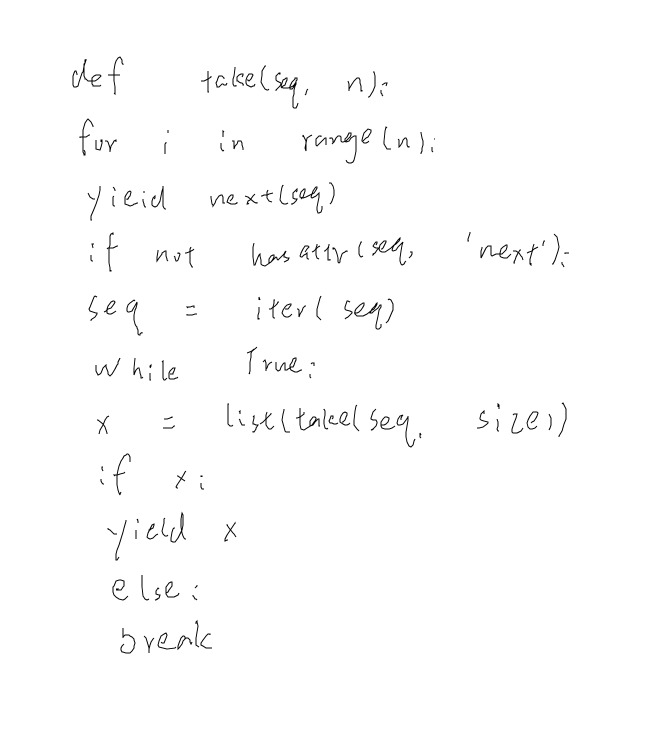 def take(seq, n):
for i in range(n):
yieid next(seq)
if not hasattr(seq, 'next'):
seq = iter(seq)
while True:
x = list(take(seq, size))
if x:
yield x
else:
break